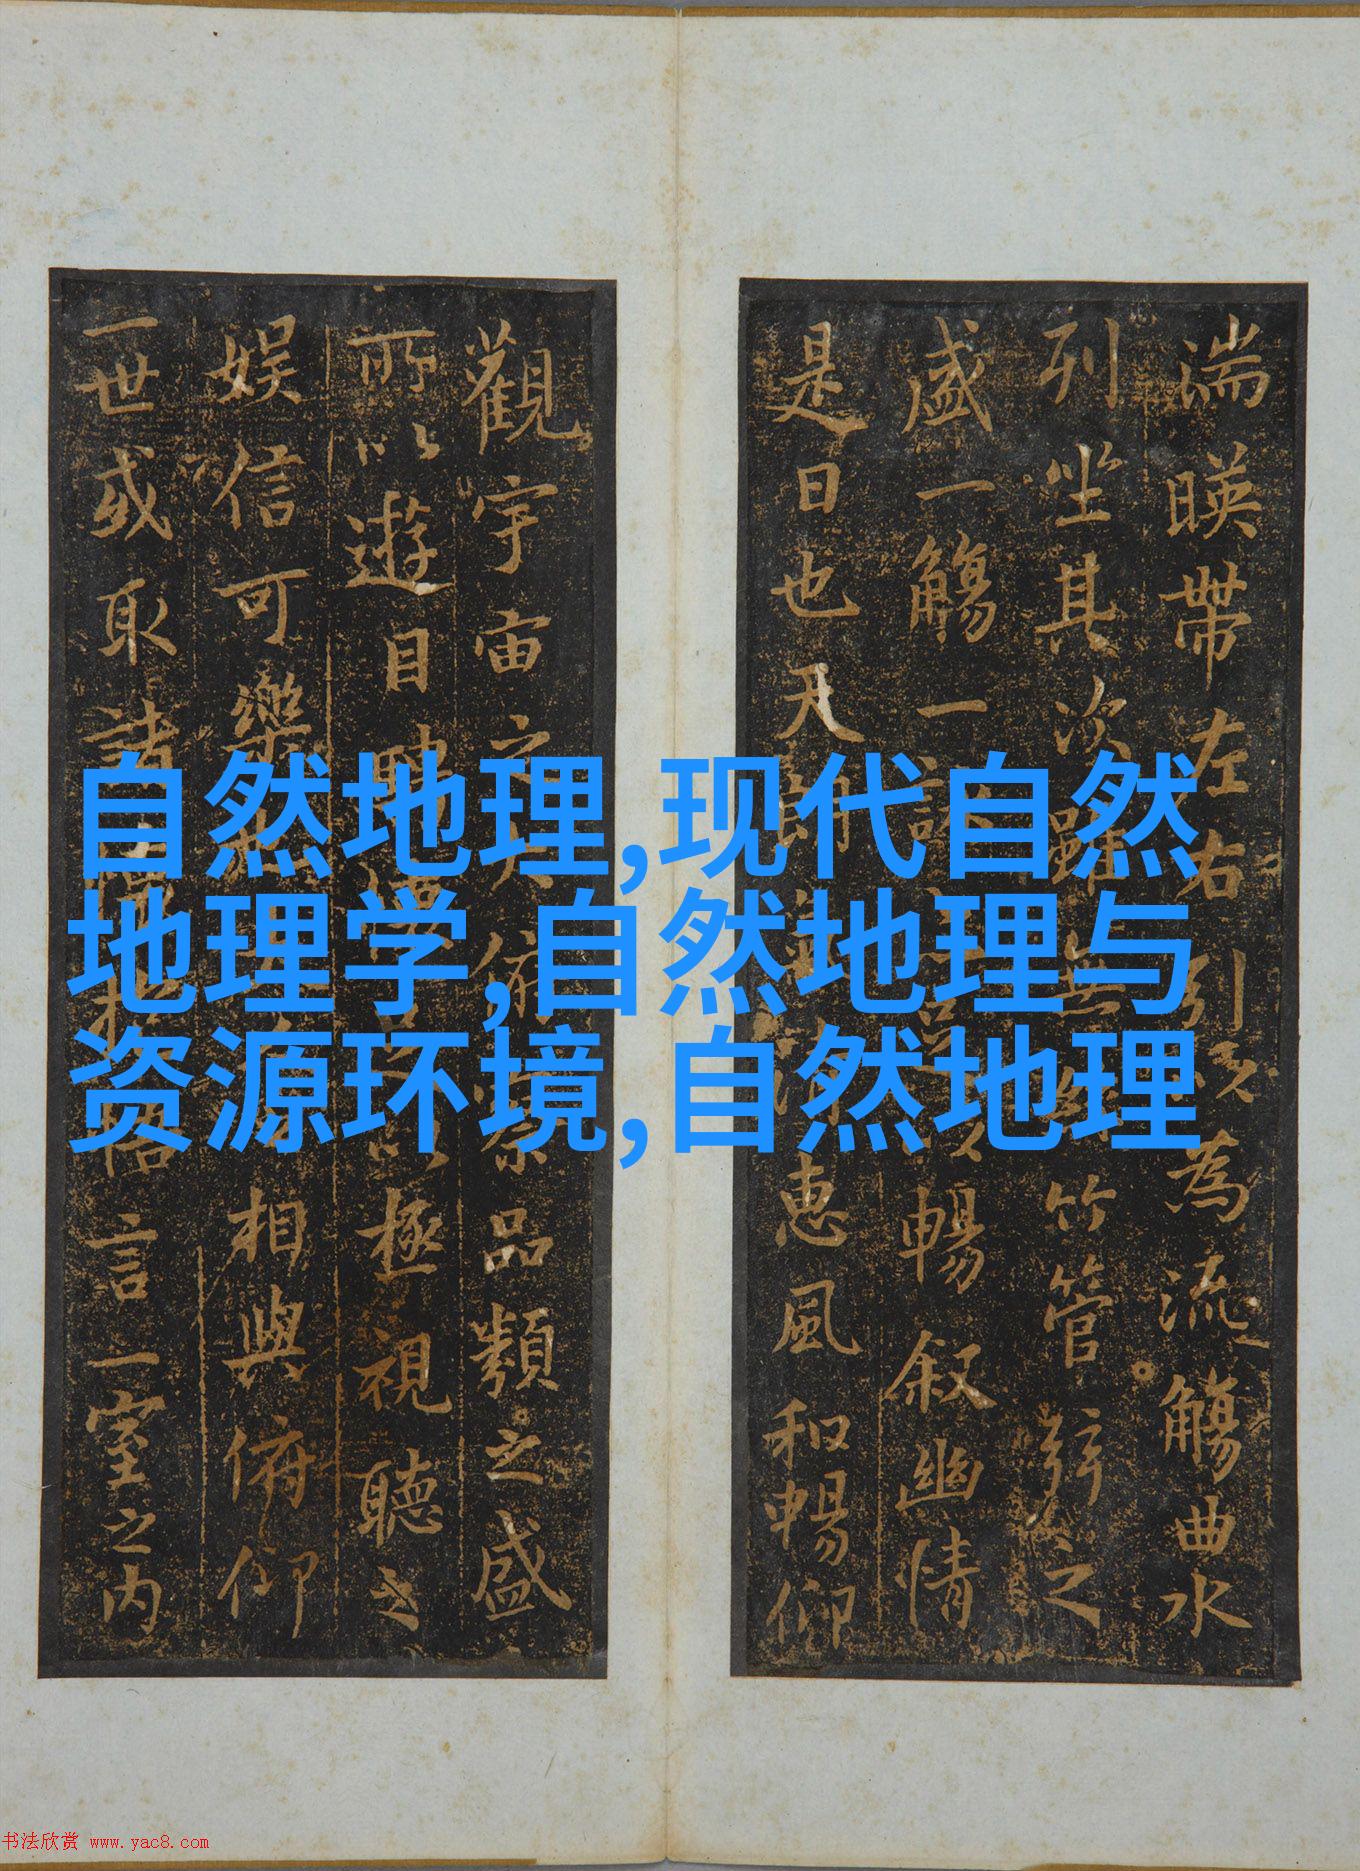 自然地理,现代自然
地理学,自然地理与
资源环境,自然地理
湍暎帶左右引為流觴曲水
列坐其次雖無竹管弦之
盛一觴一詠暢叙幽情
是日也天朗惠風和暢仰
觀宇宙之大俯察品類之盛
所以遊目騁以極視聽之
娛信可樂相與俯仰
一世或取諸言一室之內
书法欣赏 www.yac8.com